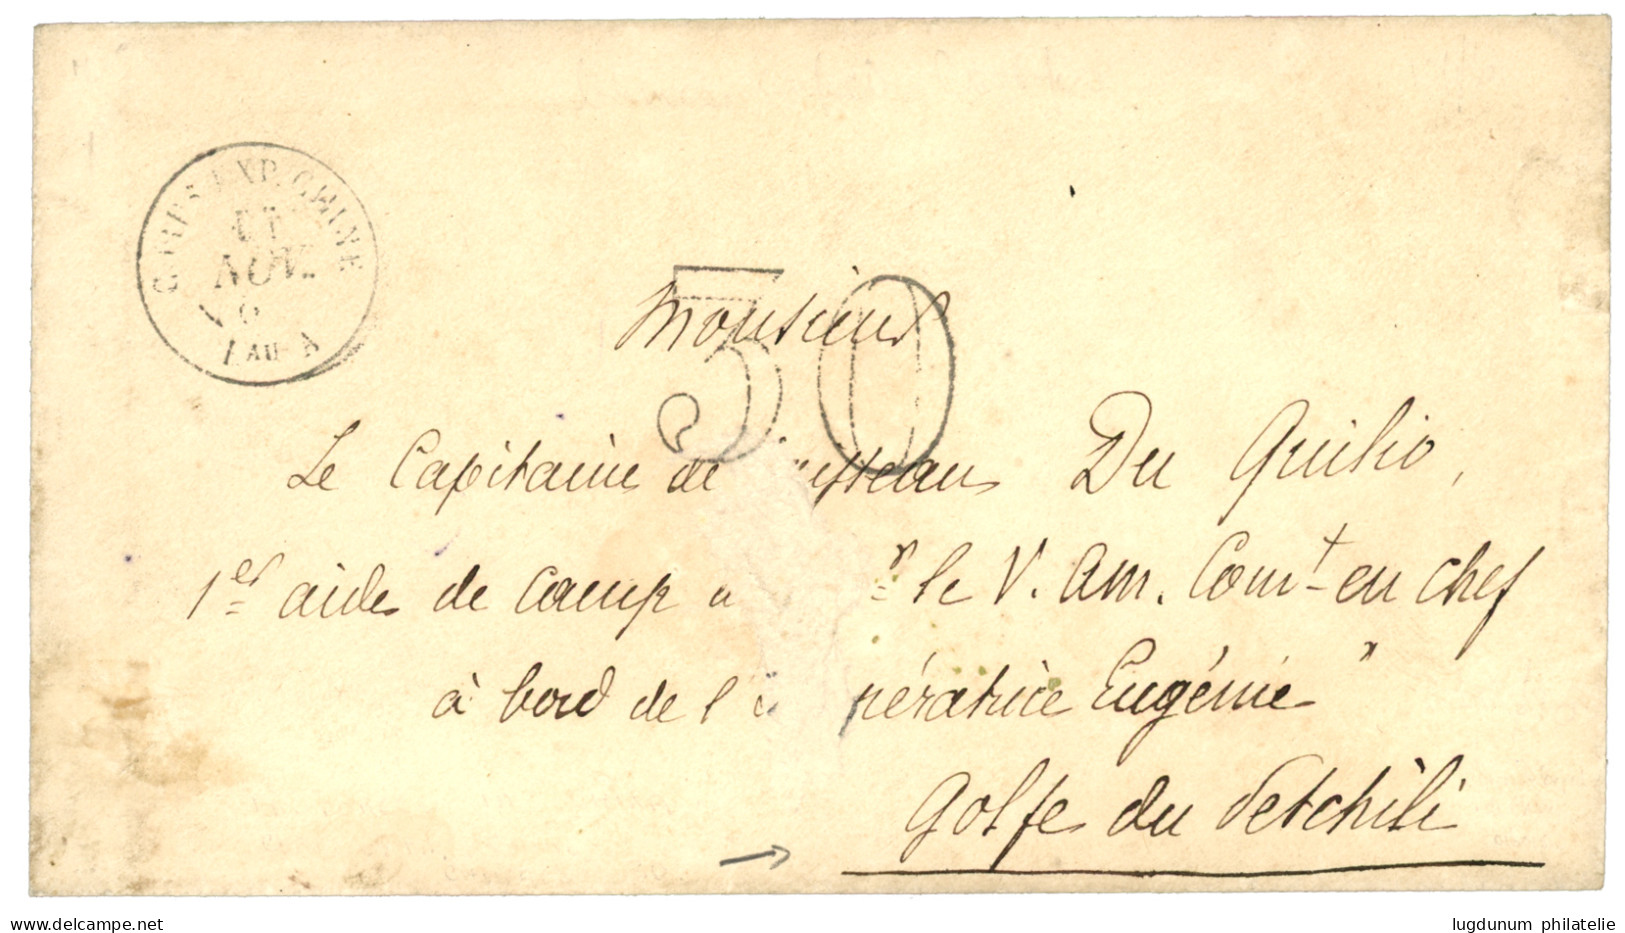 CORPS EXP. CHINE
NOV.
30
Monsieur
Le Capitaine de Du Quilio,
1er aide de camp le V. Am. Comt en chef
à bord de l' Eugénie"
Golfe du Petchili
www.delcampe.net
lugdunum philatelie